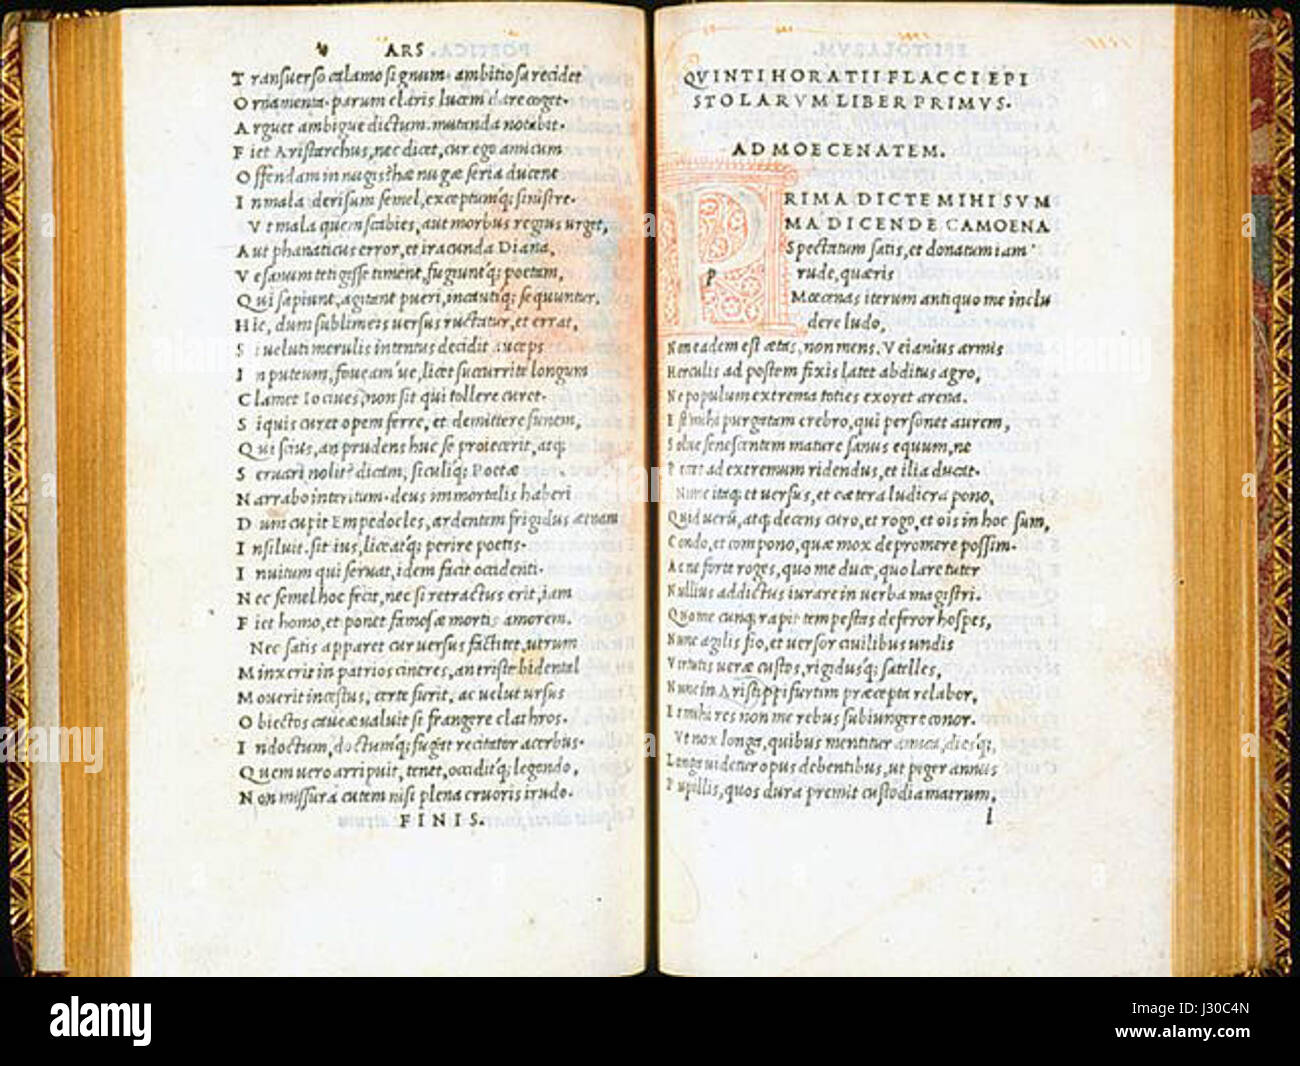 ARS
Transuerso calamo signum. ambitiosa recidet
Ornamenta. parum claris lucem dare coget.
Arguet ambigue dictum. mutanda notabit.
Fiet Aristarchus, nec dicet, cur ego amicum
Offendam in nugis? hae nugae seria ducent
In mala derisum semel, exceptumq; sinistre.
Vt mala quem scabies, aut morbus regius urget,
Aut phanaticus error, et iracunda Diana,
Vesanum tetigisse timent, fugiuntq; poetam,
Qui sapiunt, agitant pueri, incautiq; sequuntur.
Hic, dum sublimeis uersus ructatur, et errat,
Si ueluti merulis intentus decidit auceps
In puteum, foueam ue, licet succurrite longum
Clamet Io ciues, non sit qui tollere curet.
Si quis curet opem ferre, et demittere funem,
Qui scius, an prudens huc se proiecerit, atq;
Seruari nolit? dicam, siculiq; Poetae
Narrabo interitum. deus immortalis haberi
Dum cupit Empedocles, ardentem frigidus aetnam
Insiluit. sit ius, liceatq; perire poetis.
Inuitum qui seruat, idem facit occidenti.
Nec semel hoc fecit, nec si retractus erit, iam
Fiet homo, et ponet famosae mortis amorem.
Nec satis apparet cur uersus factitet, utrum
Minxerit in patrios cineres, an triste bidental
Mouerit incestus, certe furit, ac uelut ursus
Obiectos caueae ualuit si frangere clathros.
Indoctum, doctumq; fugat recitator acerbus.
Quem uero arripuit, tenet, occiditq; legendo,
Non missura cutem nisi plena cruoris irudo.
FINIS.
QVINTI HORATII FLACCI EPI
STOLARVM LIBER PRIMVS.
AD MOECENATEM.
P
p
RIMA DICTE MIHI SVM
MA DICENDE CAMOENA
Spectatum satis, et donatum iam
rude, quaeris
Moecenas iterum antiquo me inclu
dere ludo,
Non eadem est aetas, non mens. Veianius armis
Herculis ad postem fixis latet abditus agro,
Ne populum extrema toties exoret arena.
Est mihi purgatam crebro, qui personet aurem,
Solue senescentem mature sanus equum, ne
Peccet ad extremum ridendus, et ilia ducat.
Nunc itaq; et uersus, et caetera ludicra pono,
Quid uerũ, atq; decens curo, et rogo, et ois in hoc sum,
Condo, et compono, quae mox depromere possim.
Ac ne forte roges, quo me duce, quo lare tuter
Nullius addictus iurare in uerba magistri.
Quo me cunq; rapit tempestas deferor hospes,
Nunc agilis fio, et uersor ciuilibus undis
Virtutis uerae custos, rigidusq; satelles,
Nunc in Aristippi furtim praecepta relabor,
Et mihi res non me rebus subiungere conor.
Vt nox longa, quibus mentitur amica, diesq;,
Longa uidetur opus debentibus, ut piger annus
Pupillis, quos dura premit custodia matrum,
l
alamy
alamy stock photo
J30C4N
www.alamy.com